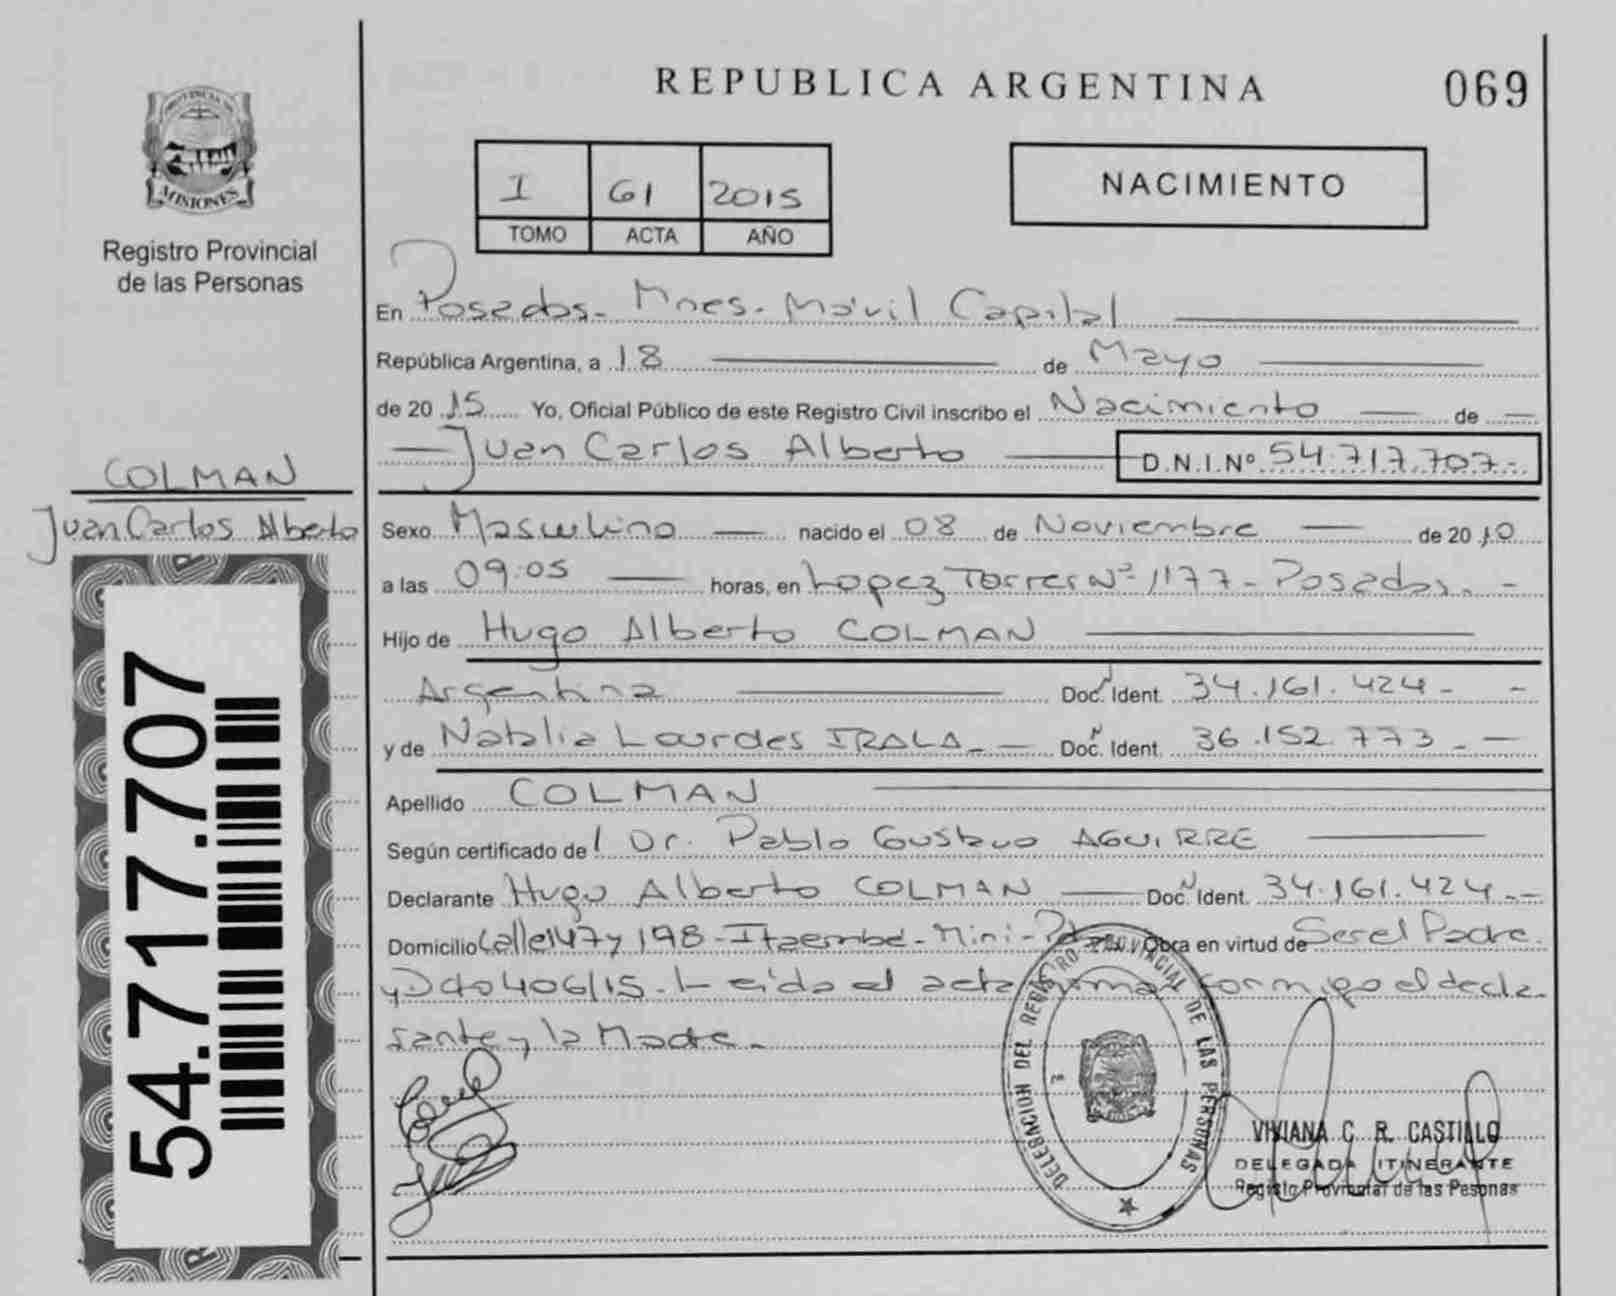 REPUBLICA ARGENTINA
069
PROVINCIA DE
MISIONES
Registro Provincial
de las Personas
I 61 2015
TOMO ACTA AÑO
NACIMIENTO
En Posadas - Mnes. - Móvil Capital
República Argentina, a 18 de Mayo
de 2015 Yo, Oficial Público de este Registro Civil inscribo el Nacimiento de
Juan Carlos Alberto D.N.I.Nº 54.717.707-
COLMAN
Juan Carlos Alberto
54.717.707
Sexo Masculino nacido el 08 de Noviembre de 2010
a las 09:05 horas, en Lopez Torres Nº 1177 - Posadas. -
Hijo de Hugo Alberto COLMAN
Argentina Doc. Ident. 34.161.424 - -
y de Natalia Lourdes IRALA - Doc. Ident. 36.152.773 - -
Apellido COLMAN
Según certificado de Dr. Pablo Gustavo AGUIRRE
Declarante Hugo Alberto COLMAN Doc. Ident. 34.161.424 -
Domicilio Calle 147 y 198 - Itaembé - Mini - Obra en virtud de Ser el Padre.
y Dcto 406/15. Leída el acta firman conmigo el decla-
rante y la Madre. -
DELEGACION DEL REGISTRO PROVINCIAL DE LAS PERSONAS
VIVIANA C. R. CASTILLO
DELEGADA ITINERANTE
Registro Provincial de las Pesonas